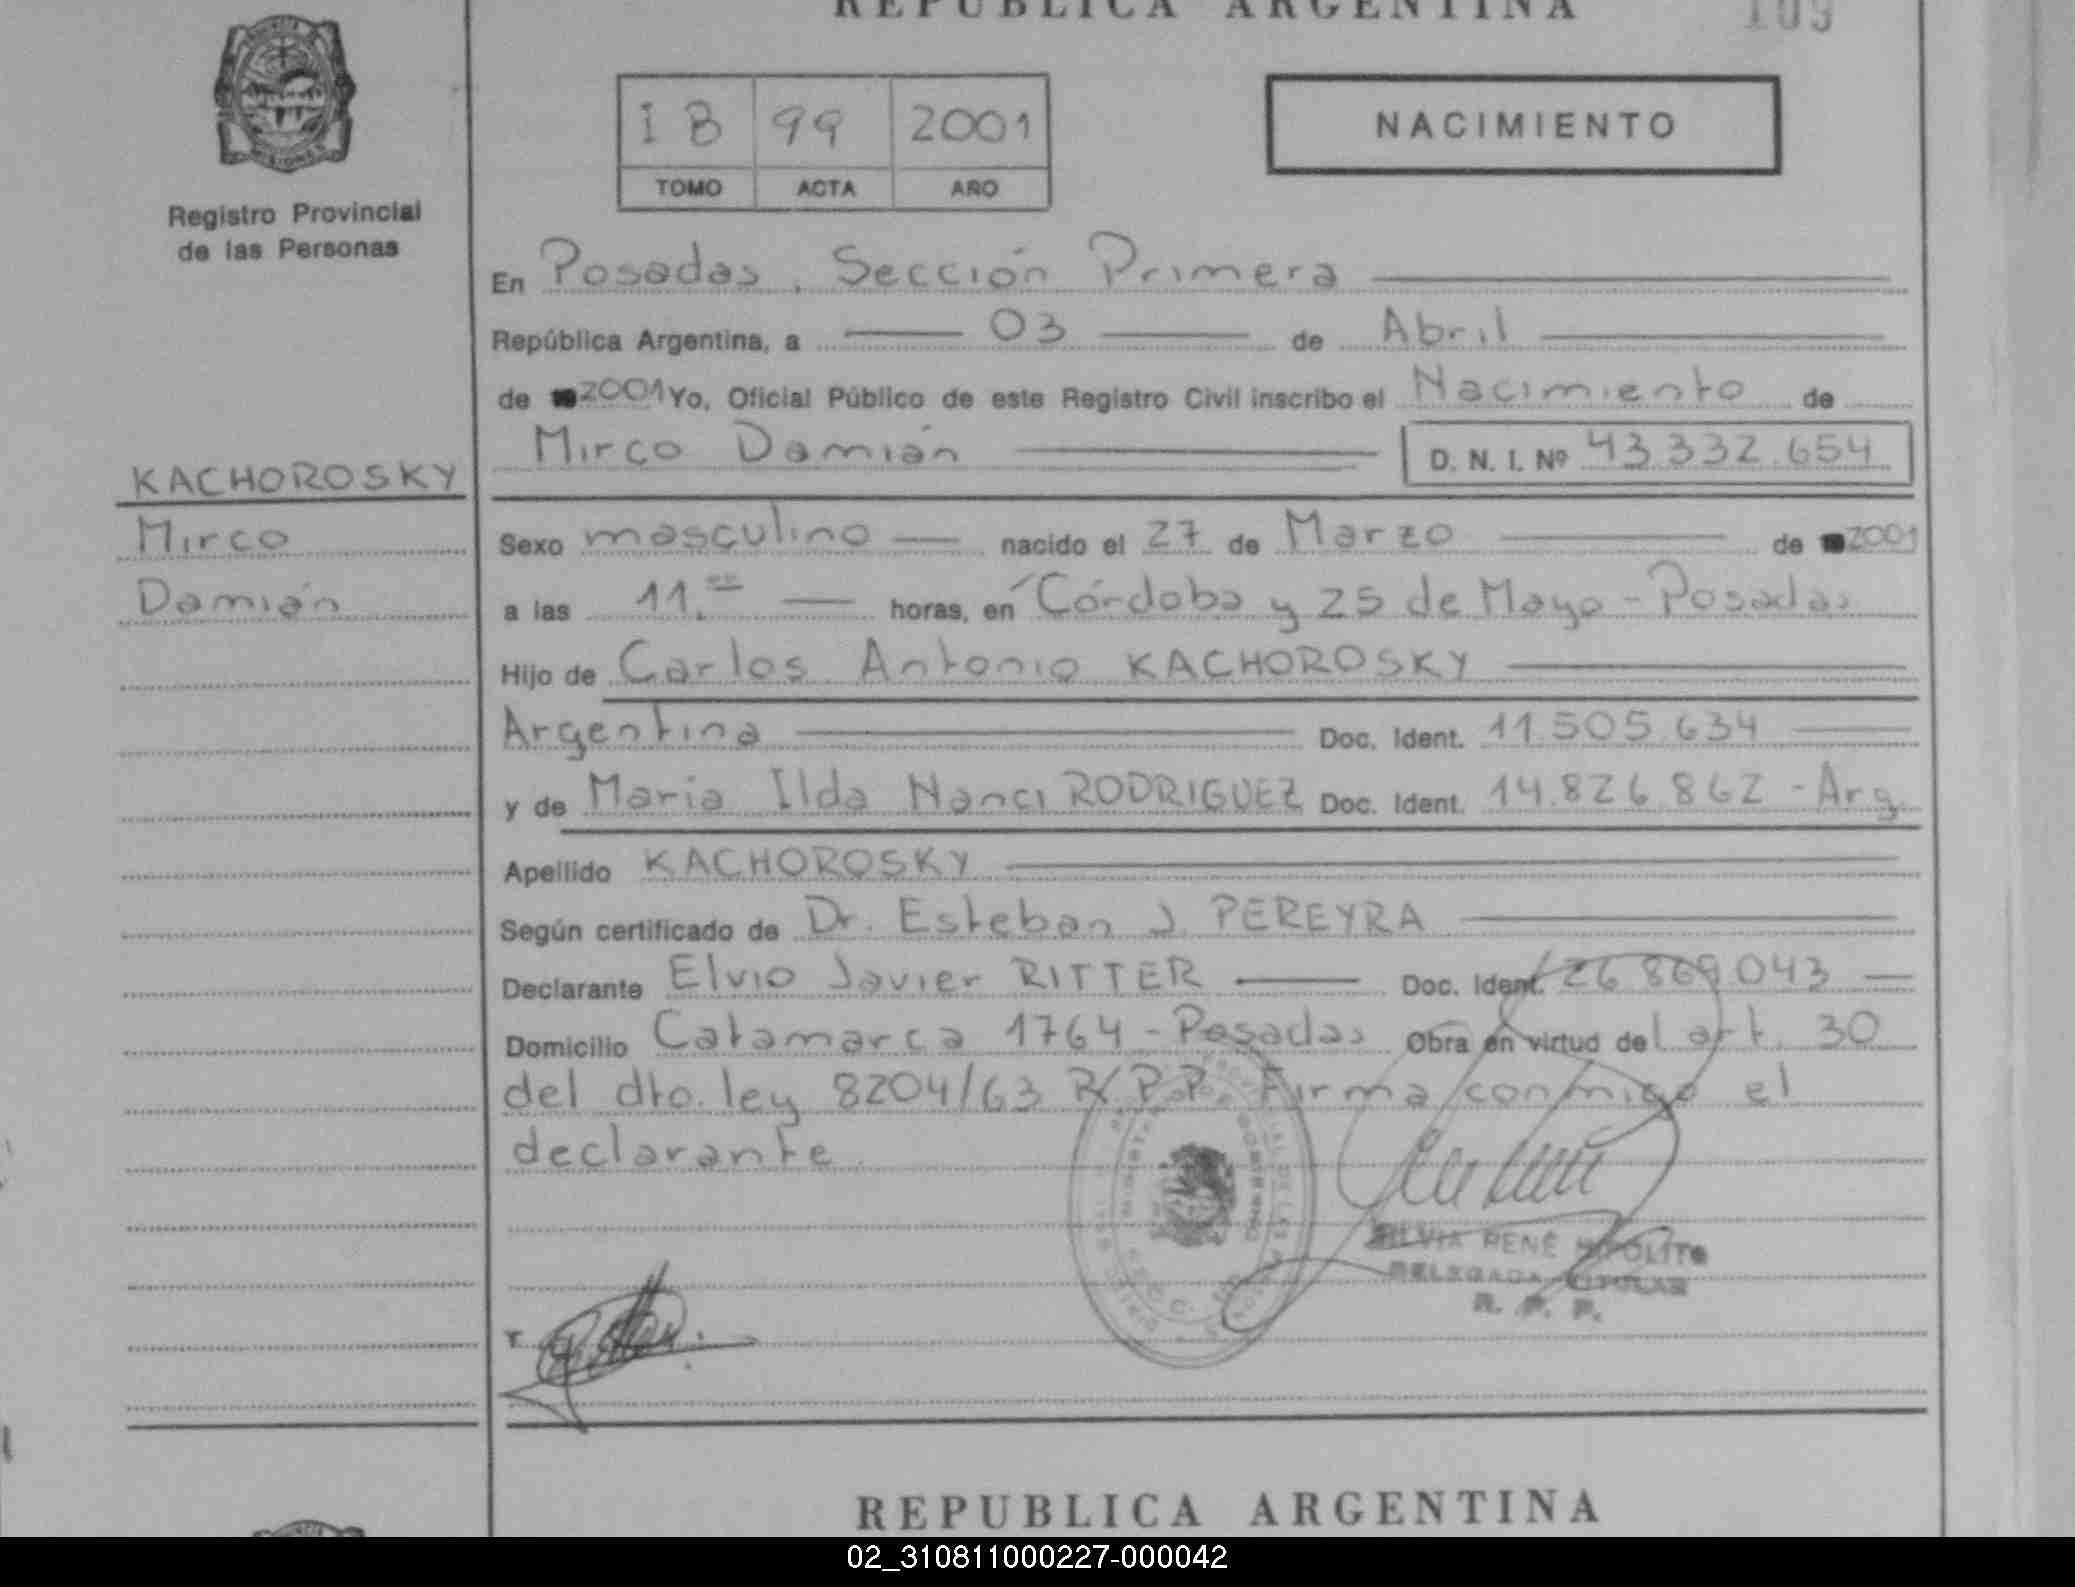 REPUBLICA ARGENTINA
109
MISIONES
Registro Provincial
de las Personas
I B 99 2001
TOMO ACTA AÑO
NACIMIENTO
En Posadas, Sección Primera
República Argentina, a 03 de Abril
de 2001 Yo, Oficial Público de este Registro Civil inscribo el Nacimiento de
Mirco Damián D. N. I. Nº 43.332.654
KACHOROSKY
Mirco
Damián
Sexo masculino nacido el 27 de Marzo de 2001
a las 11.00 horas, en Córdoba y 25 de Mayo - Posadas
Hijo de Carlos Antonio KACHOROSKY
Argentina Doc. Ident. 11.505.634
y de Maria Ilda Nanci RODRIGUEZ Doc. Ident. 14.826.862 - Arg.
Apellido KACHOROSKY
Según certificado de Dr. Esteban J. PEREYRA
Declarante Elvio Javier RITTER Doc. Ident. 26.869.043
Domicilio Catamarca 1764 - Posadas Obra en virtud del art. 30
del dto. ley 8204/63 R.P.P. Firma conmigo el
declarante
SILVIA RENÉ HIPOLITO
DELEGADA TITULAR
R. P. P.
REPUBLICA ARGENTINA
02_310811000227-000042